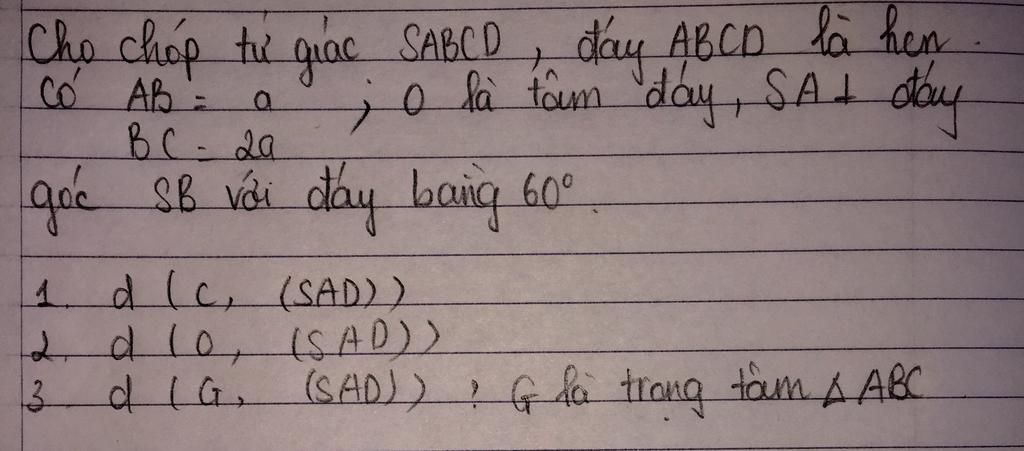 Cho chóp tứ giác SABCD, đáy ABCD là hcn.
có AB = a ; O là tâm đáy, SA ⊥ đáy
BC = 2a
góc SB với đáy bằng 60°.
1. d (C, (SAD))
2. d (O, (SAD))
3 d (G, (SAD)) ; G là trọng tâm Δ ABC